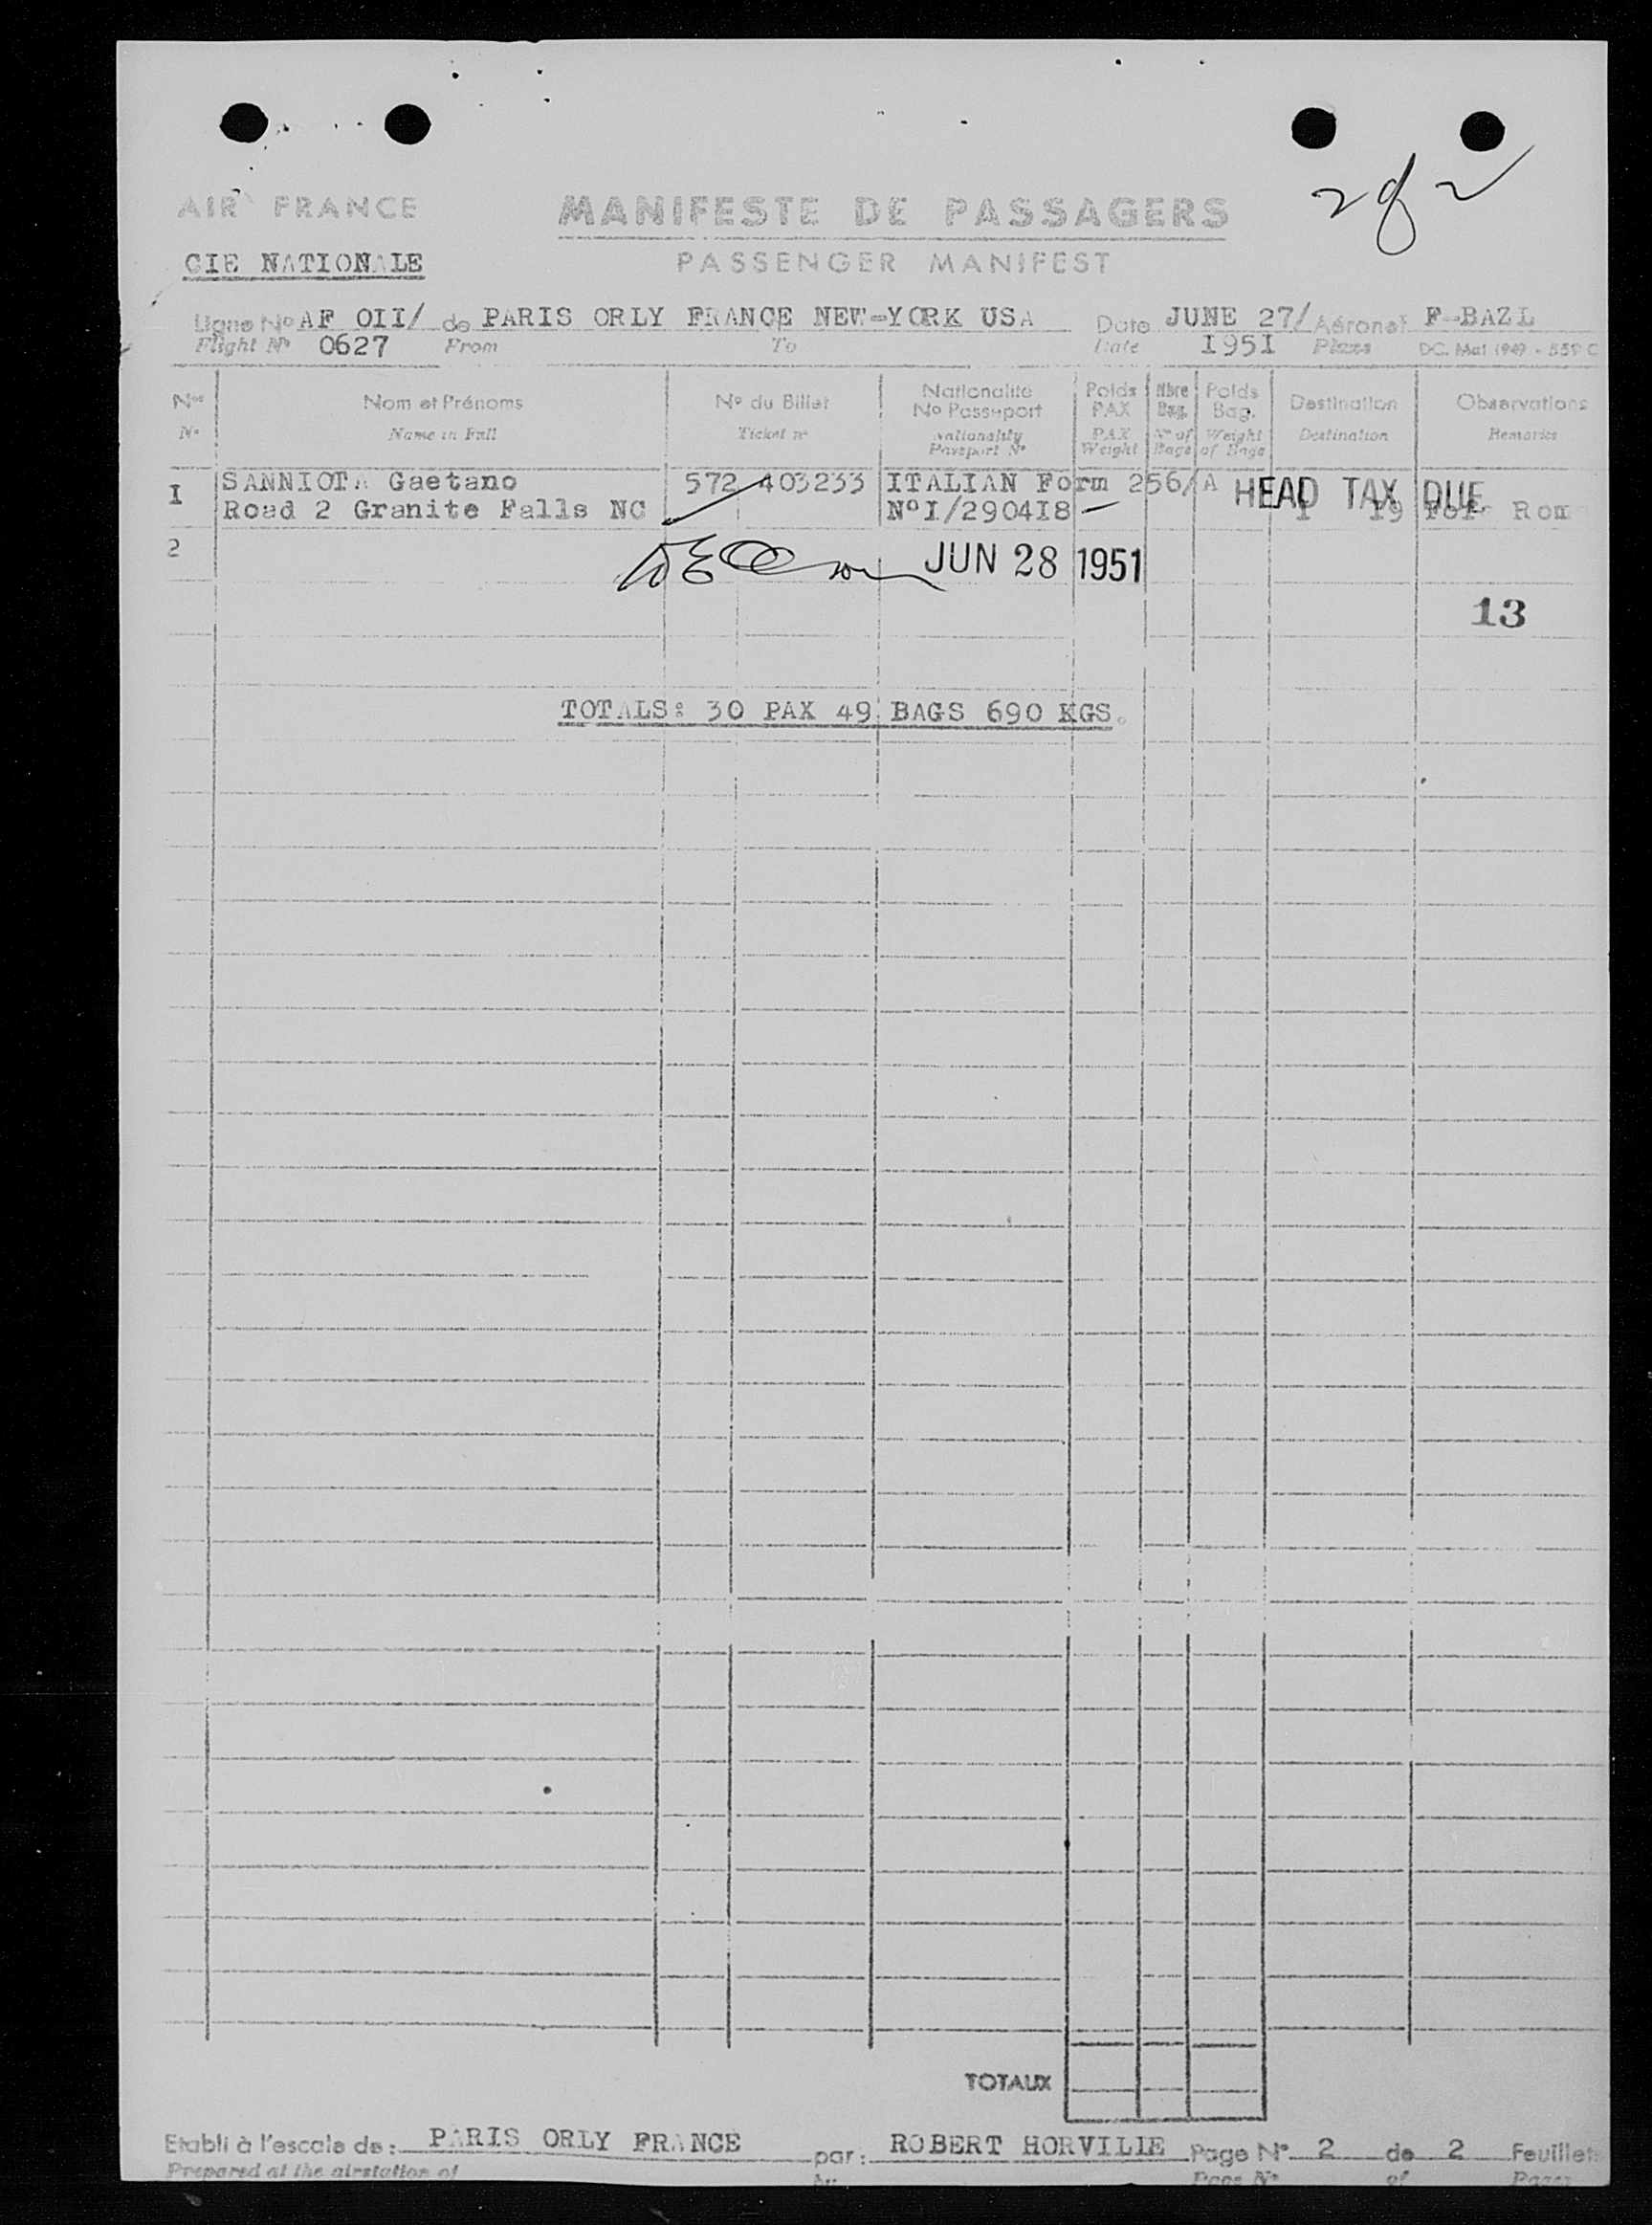 2 of 2
AIR FRANCE
MANIFESTE DE PASSAGERS
CIE NATIONALE
PASSENGER MANIFEST
Ligne No AF OII/ de PARIS ORLY FRANCE NEW-YORK USA Date JUNE 27/ Aéronef F-BAZL
Flight No 0627 From To Date I95I Plane DC. Mat 1949 - 559 C
Nos Nom et Prénoms No du Billet Nationalité No Passeport Poids PAX Nbre Bag. Poids Bag. Destination Observations
No Name in Full Ticket no Nationality Passport No PAX Weight No of Bags Weight of Bags Destination Remarks
I SANNIOTA Gaetano 572 403233 ITALIAN Form 256/A HEAD TAX DUE
Road 2 Granite Falls NC NoI/2904I8 - I I9 Rom
2
JUN 28 1951
13
TOTALS: 30 PAX 49 BAGS 690 KGS.
TOTAUX
Etabli à l'escale de: PARIS ORLY FRANCE par: ROBERT HORVILLE Page No 2 de 2 Feuillets
Prepared at the airstation of by: Page No of Pages